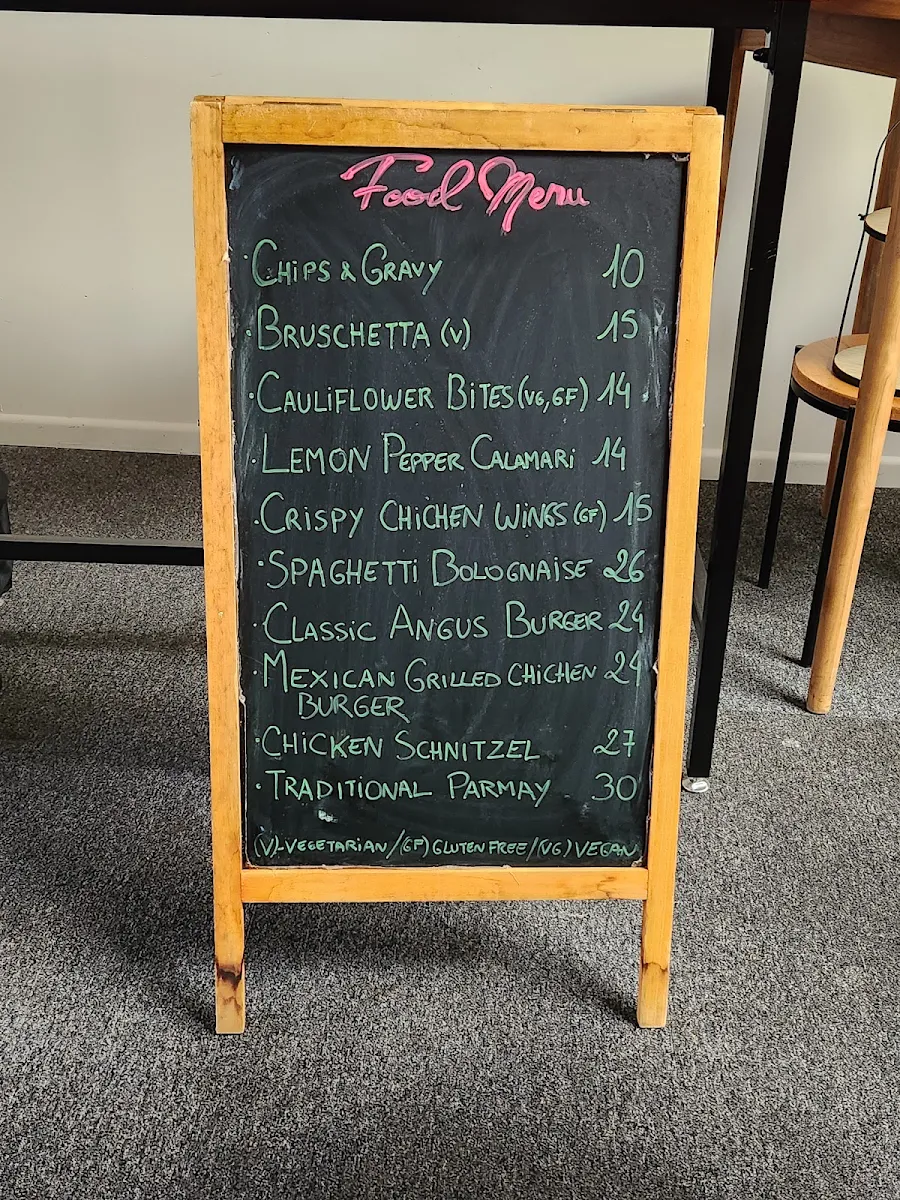 Food Menu
· CHIPS & GRAVY 10
· BRUSCHETTA (V) 15
· CAULIFLOWER BITES (VG, GF) 14
· LEMON PEPPER CALAMARI 14
· CRISPY CHICHEN WINGS (GF) 15
· SPAGHETTI BOLOGNAISE 26
· CLASSIC ANGUS BURGER 24
· MEXICAN GRILLED CHICHEN 24
BURGER
· CHICKEN SCHNITZEL 27
· TRADITIONAL PARMAY 30
(V)-VEGETARIAN/(GF) GLUTEN FREE/(VG) VEGAN